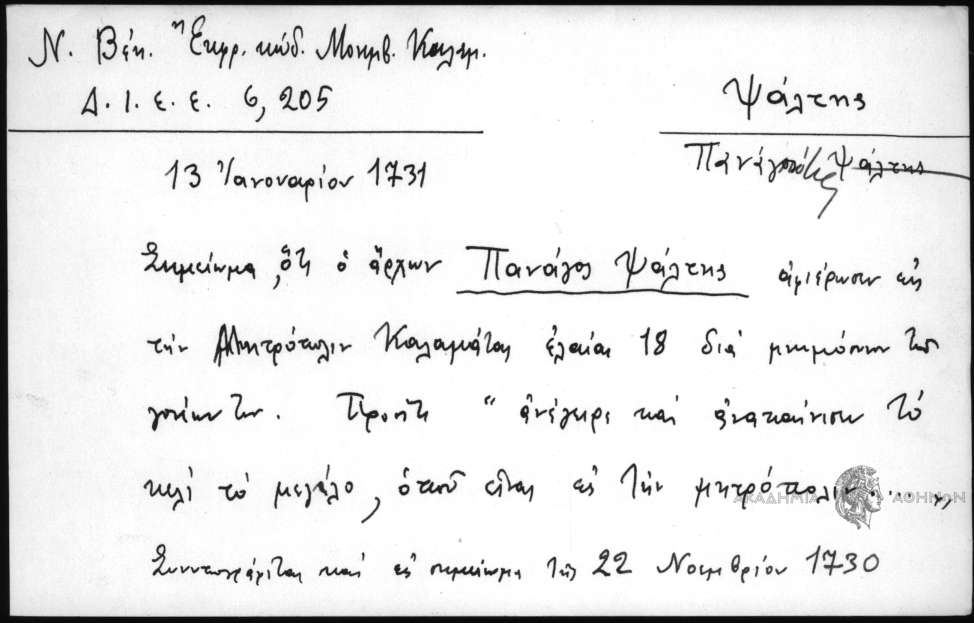 Ν. Βέη. Ἡ Ἐκφρ. κώδ. Μονεμβ. Καλαμ.
Δ. Ι. Ε. Ε. 6, 205
Ψάλτης
Παναγιώτης Ψάλτης
13 Ἰανουαρίου 1731
Σημείωμα, ὅτι ὁ ἄρχων Πανάγος Ψάλτης ἀφιέρωσεν εἰς
τὴν Μητρόπολιν Καλαμάτας ἐλαίας 18 διὰ μνημόσυνον των
γονέων του. Προσέτι "ἀνέγειρε καὶ ἀνακαίνισεν τὸ
κελὶ τὸ μεγάλο, ὁποῦ εἶναι εἰς τὴν μητρόπολιν.....,
Συνυπογράφεται καὶ εἰς σημείωμα τῆς 22 Νοεμβρίου 1730
ΑΚΑΔΗΜΙΑ ΑΘΗΝΩΝ